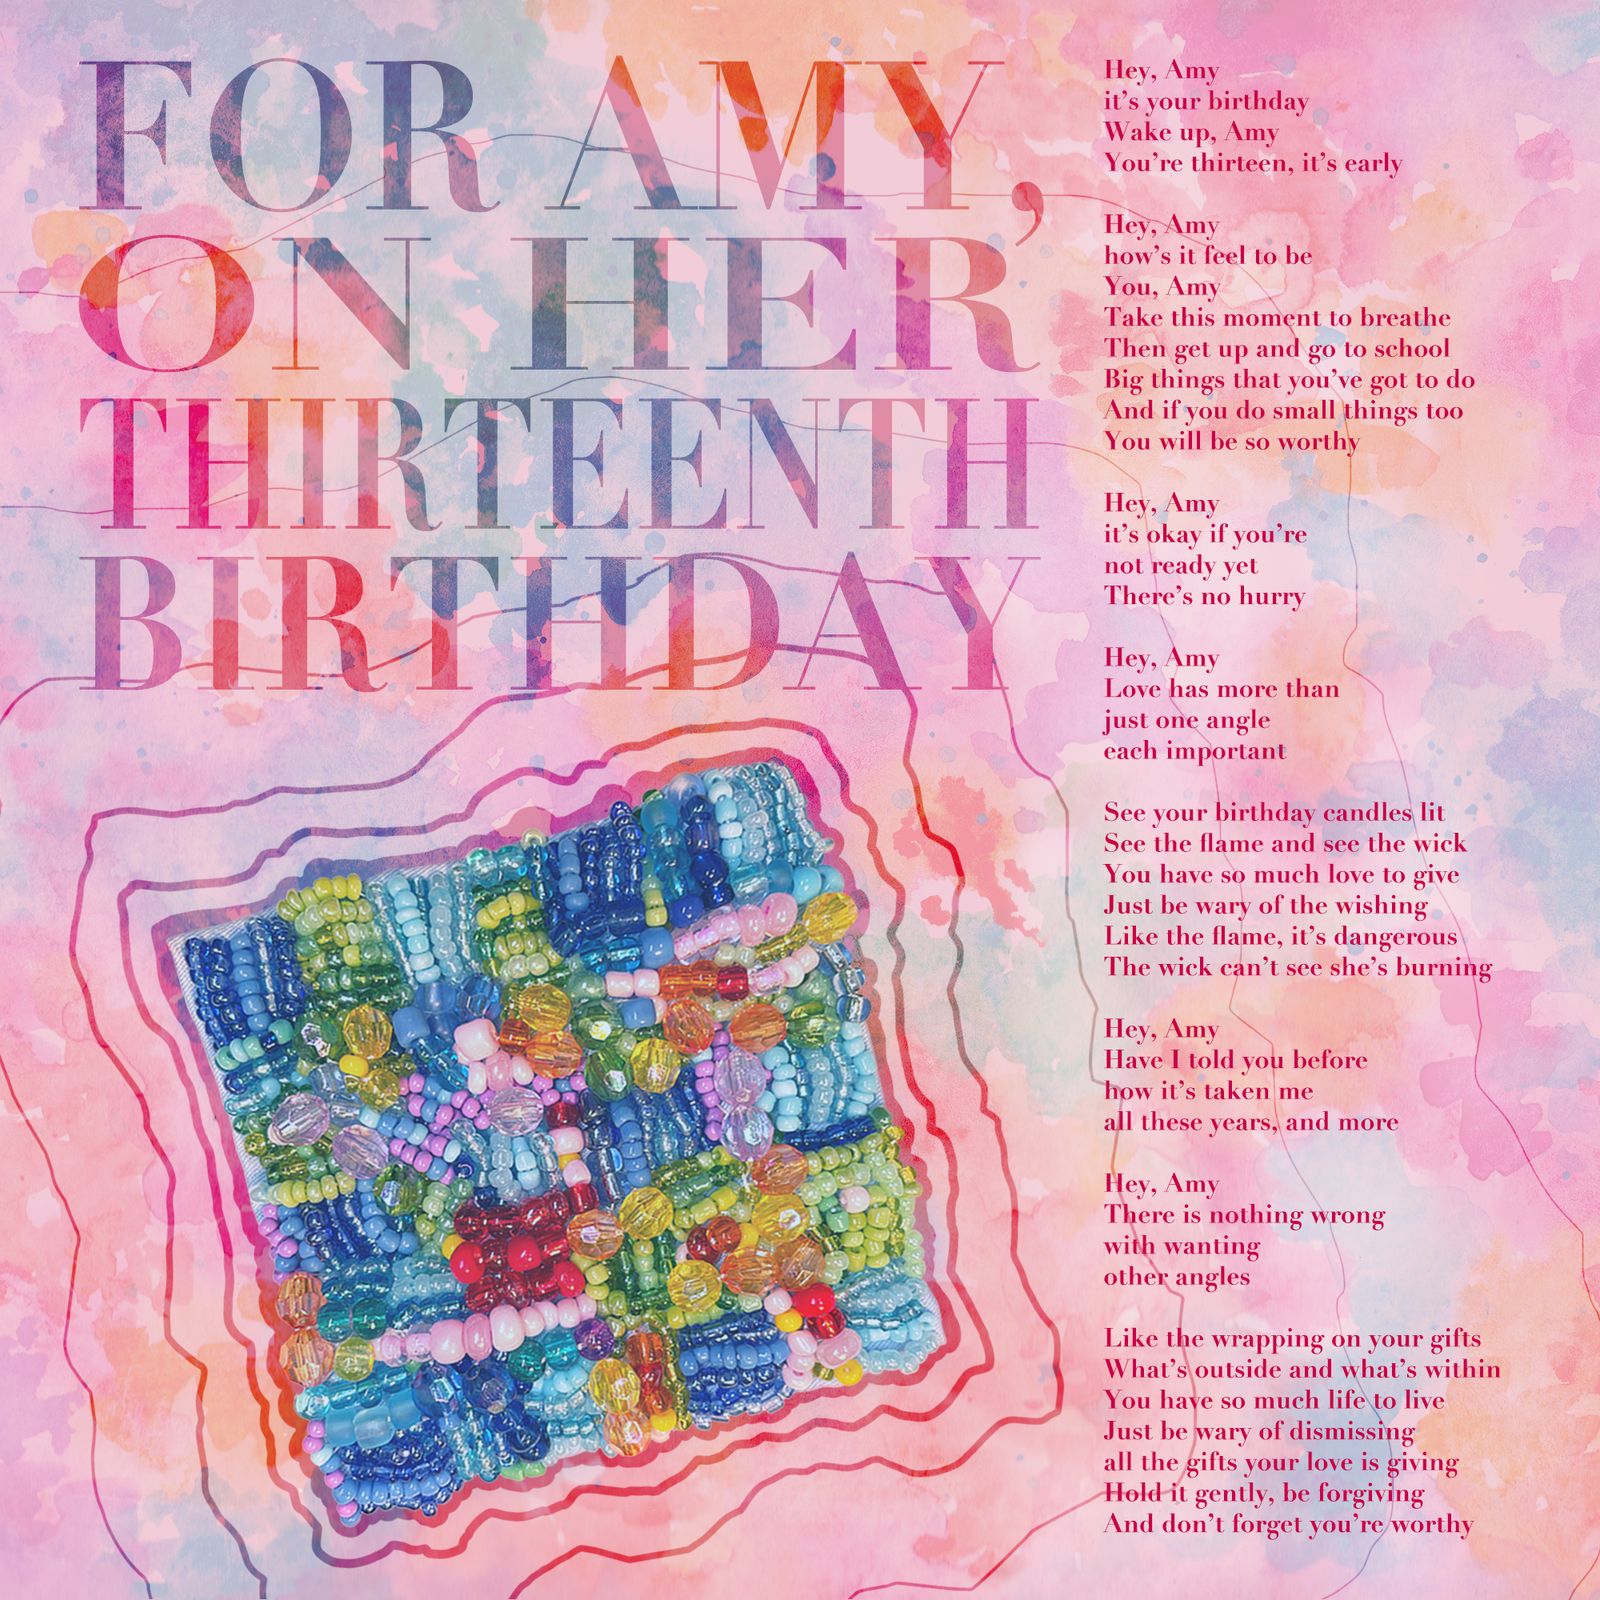 FOR AMY,
ON HER
THIRTEENTH
BIRTHDAY
Hey, Amy
it's your birthday
Wake up, Amy
You're thirteen, it's early
Hey, Amy
how's it feel to be
You, Amy
Take this moment to breathe
Then get up and go to school
Big things that you've got to do
And if you do small things too
You will be so worthy
Hey, Amy
it's okay if you're
not ready yet
There's no hurry
Hey, Amy
Love has more than
just one angle
each important
See your birthday candles lit
See the flame and see the wick
You have so much love to give
Just be wary of the wishing
Like the flame, it's dangerous
The wick can't see she's burning
Hey, Amy
Have I told you before
how it's taken me
all these years, and more
Hey, Amy
There is nothing wrong
with wanting
other angles
Like the wrapping on your gifts
What's outside and what's within
You have so much life to live
Just be wary of dismissing
all the gifts your love is giving
Hold it gently, be forgiving
And don't forget you're worthy